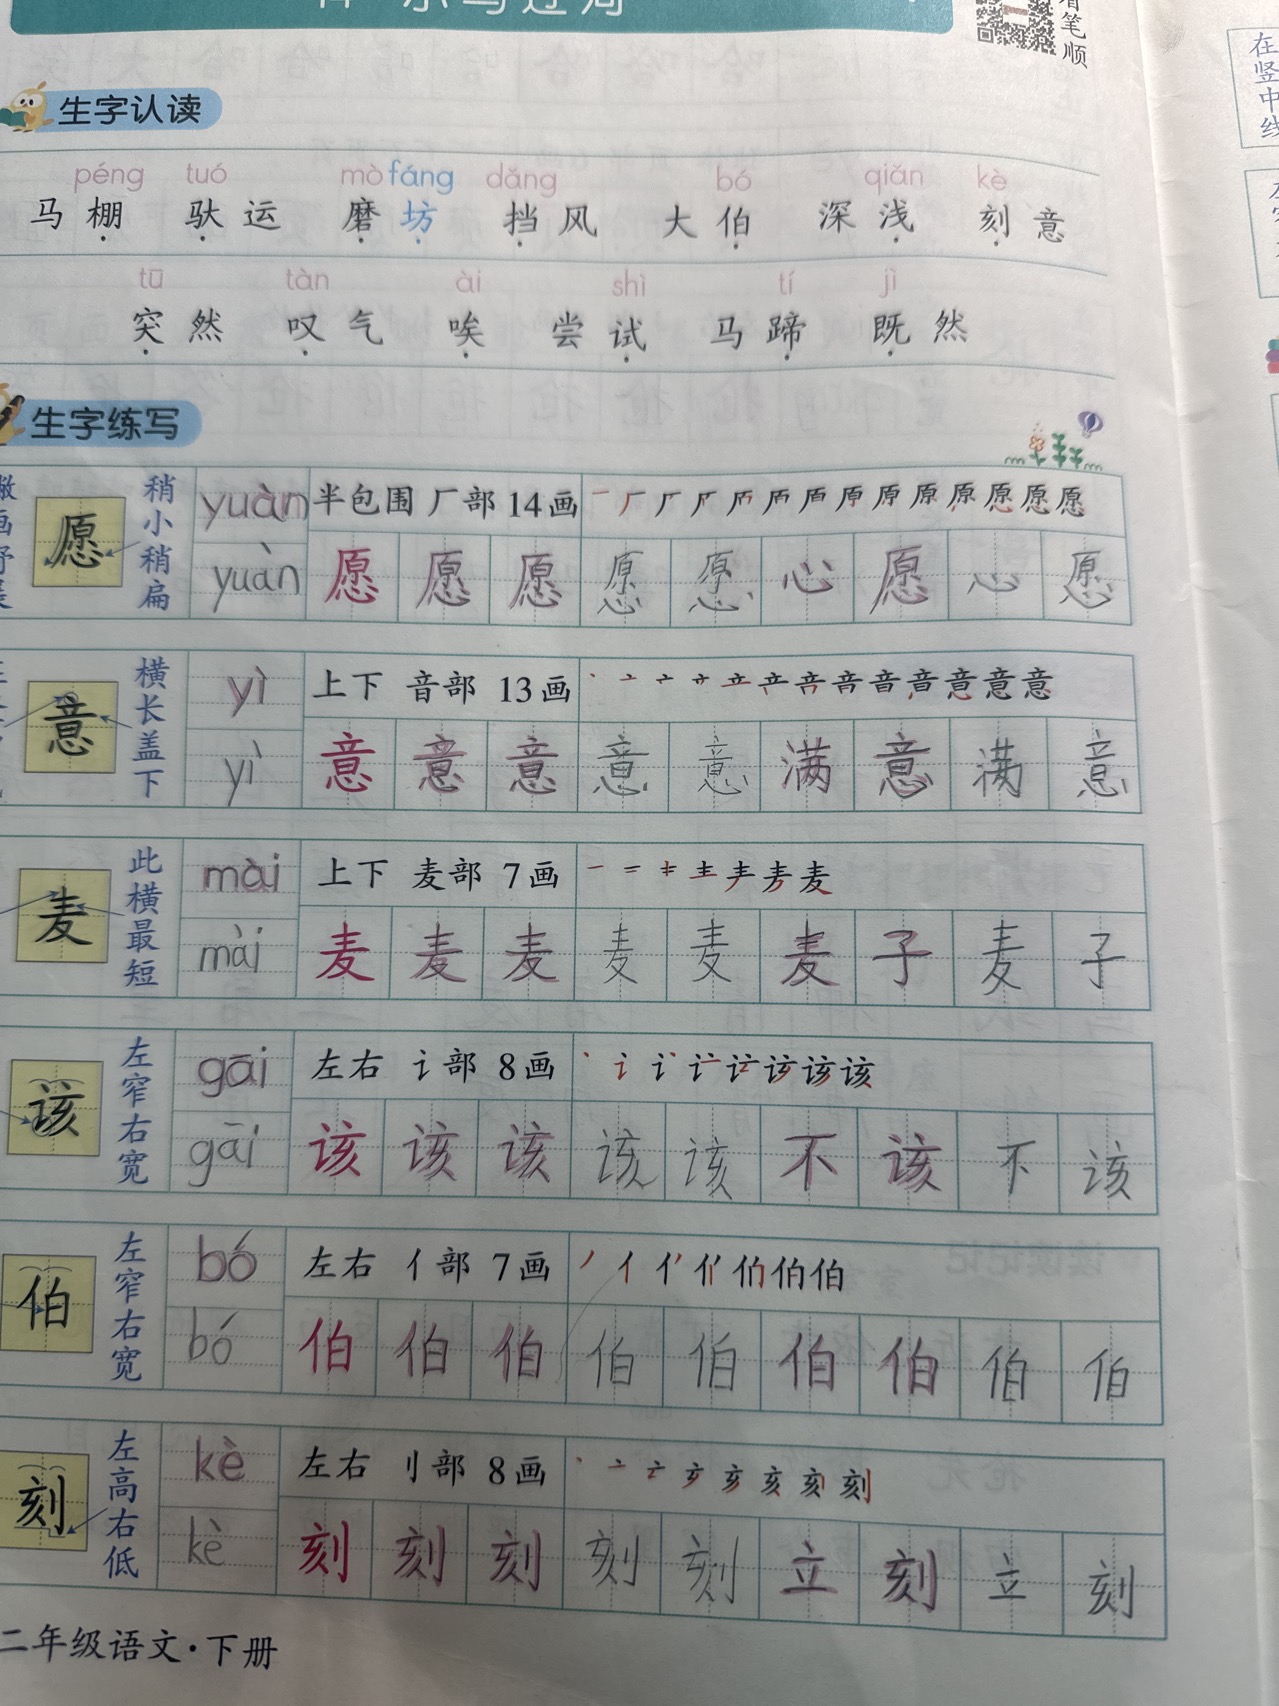 小马过河
看笔顺
生字认读
péng tuó mò fáng dǎng bó qiǎn kè
马棚 驮运 磨坊 挡风 大伯 深浅 刻意
tū tàn ài shì tí jì
突然 叹气 唉 尝试 马蹄 既然
生字练写
愿 稍小稍扁 yuàn 半包围 厂部 14画 愿
yuàn 愿 愿 愿 愿 愿 心 愿 心 愿
意 横长盖下 yì 上下 音部 13画 音 音 音 意 意 意
yì 意 意 意 意 意 满 意 满 意
麦 此横最短 mài 上下 麦部 7画 一 二 麦
mài 麦 麦 麦 麦 麦 麦 子 麦 子
该 左窄右宽 gāi 左右 讠部 8画 讠 该
gāi 该 该 该 该 该 不 该 不 该
伯 左窄右宽 bó 左右 亻部 7画 丿 亻 伯 伯
bó 伯 伯 伯 伯 伯 伯 伯 伯 伯
刻 左高右低 kè 左右 刂部 8画 亥 刻
kè 刻 刻 刻 刻 刻 立 刻 立 刻
二年级语文·下册
在竖中线